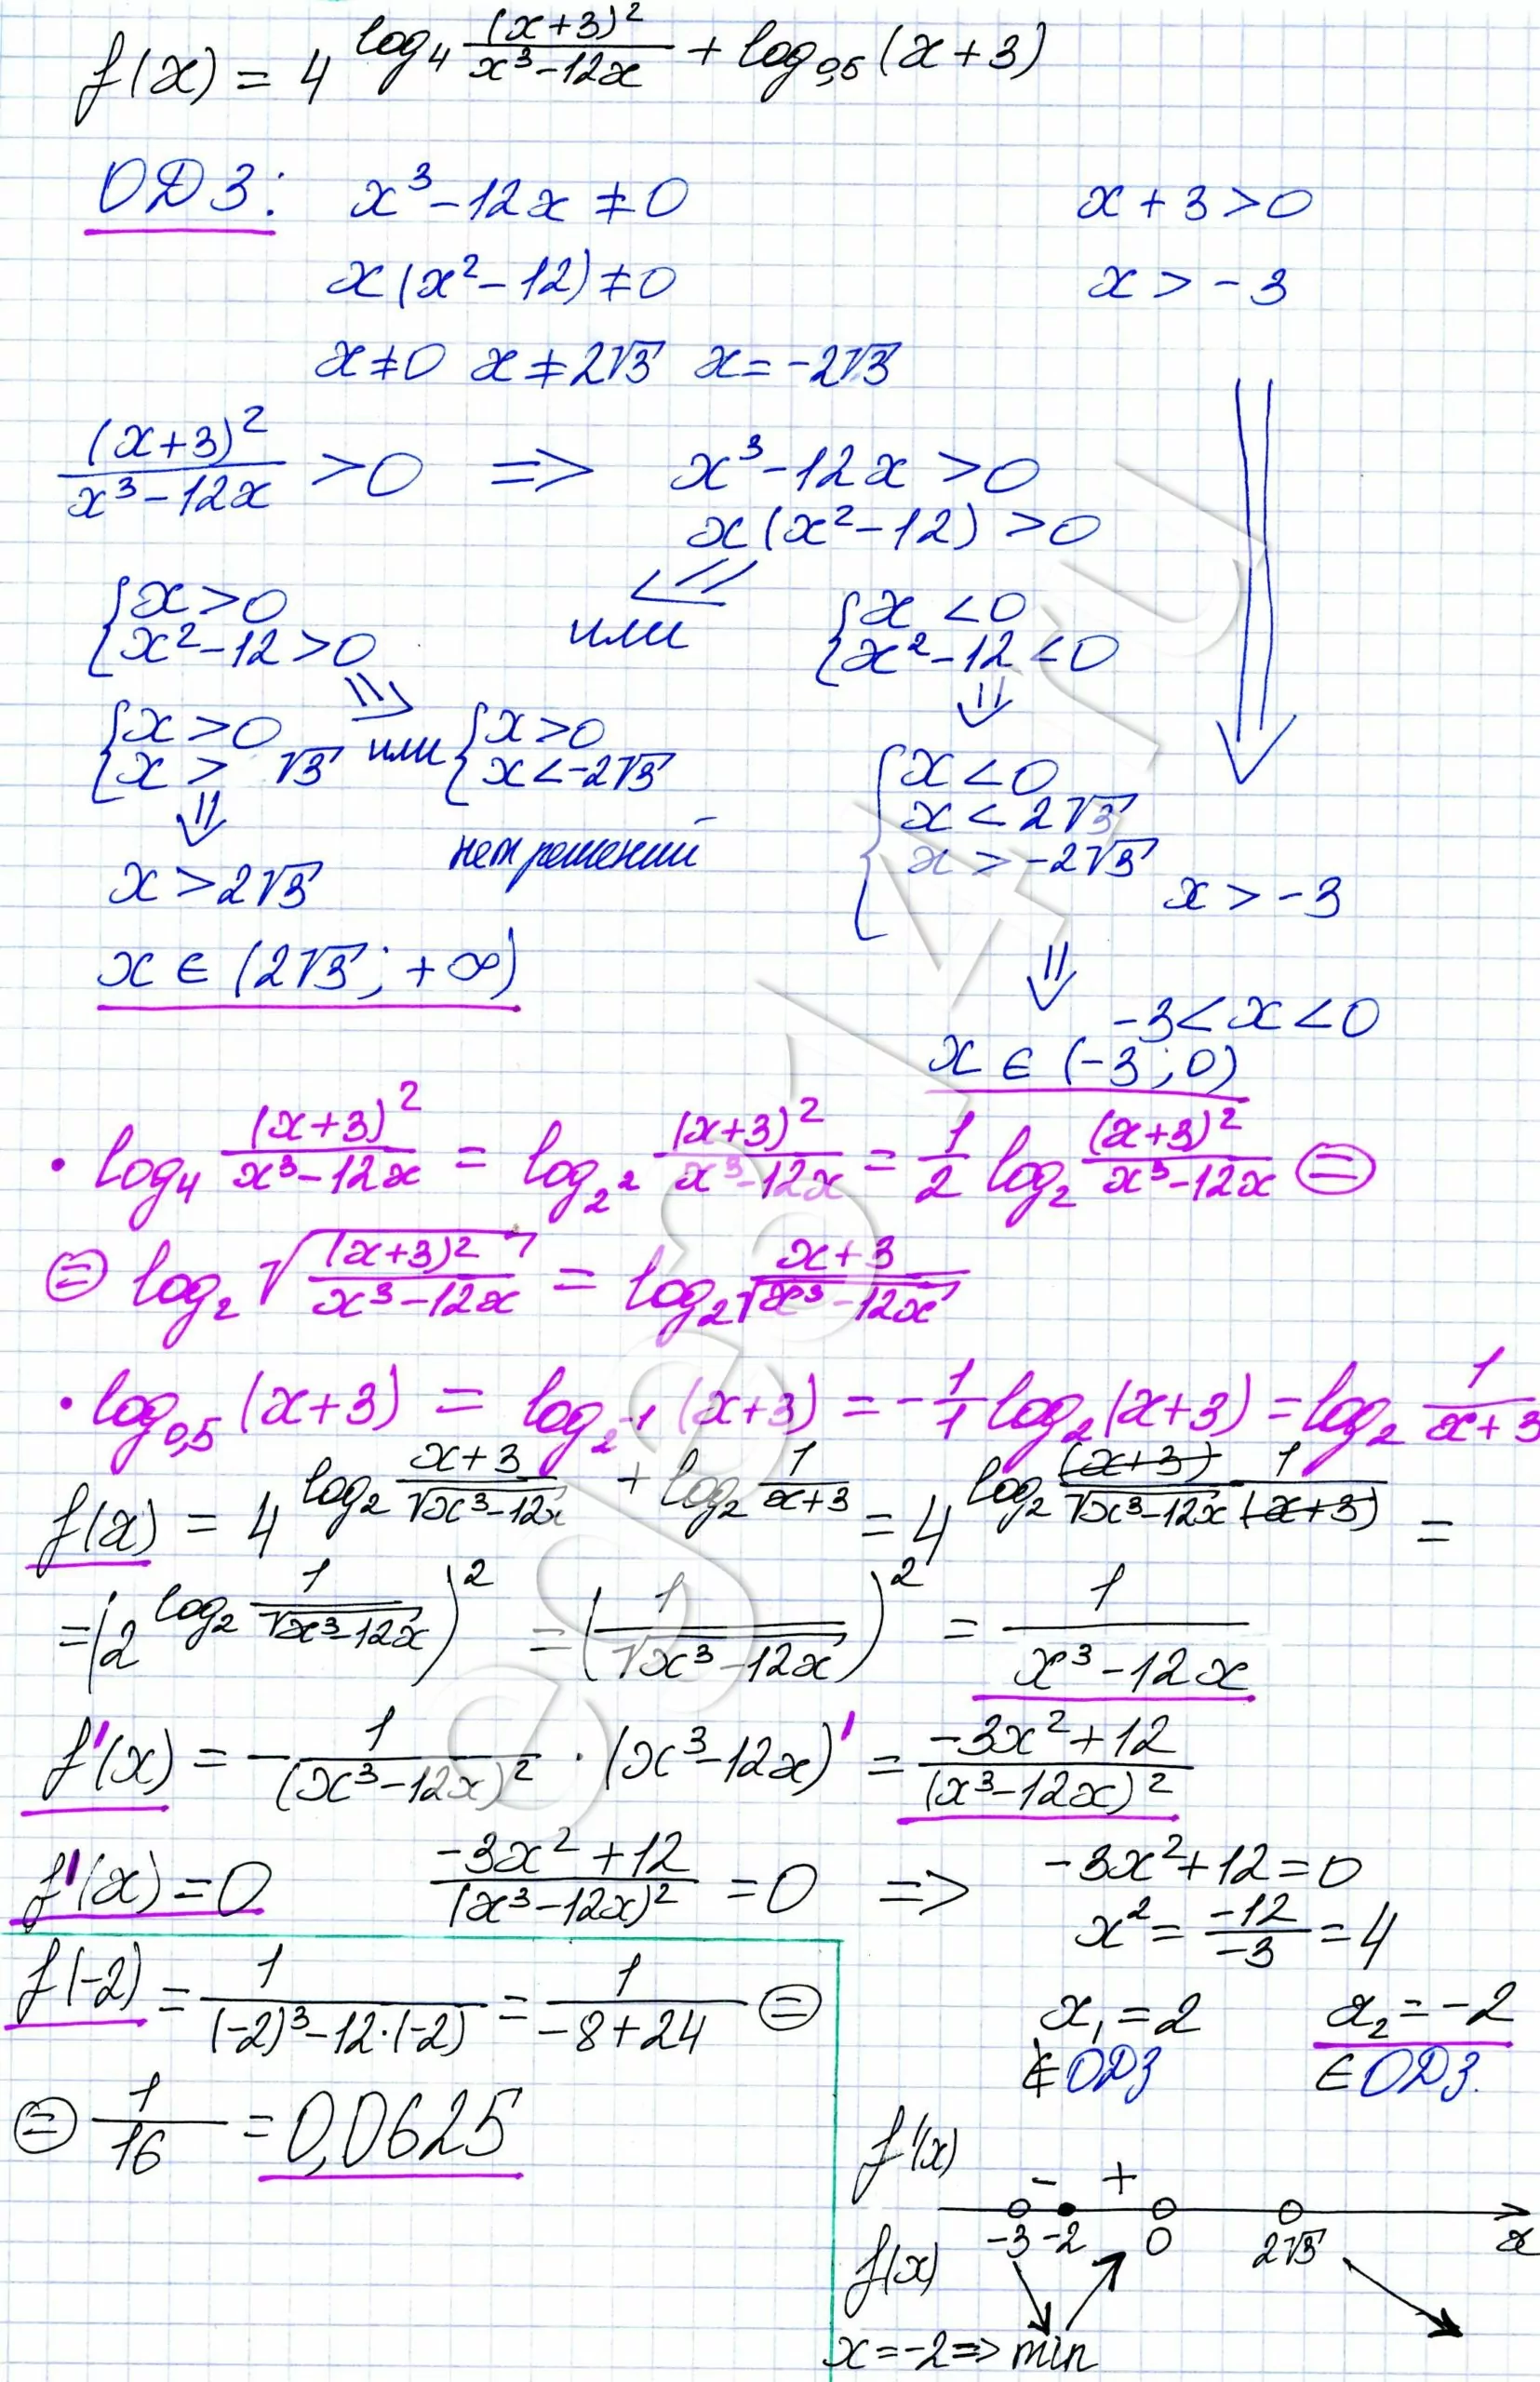 f(x) = 4^(log₄ (x+3)²/(x³-12x) + log₀,₅(x+3))
ОДЗ: x³-12x ≠ 0 x+3>0
x(x²-12) ≠ 0 x > -3
x ≠ 0 x ≠ 2√3 x = -2√3
(x+3)²/(x³-12x) > 0 => x³-12x > 0
x(x²-12) > 0
{x>0 {x<0
{x²-12>0 или {x²-12<0
{x>0 или {x>0
{x> √3 {x<-2√3
{x<0
x<2√3
x>-2√3
нет решений
x>2√3 x>-3
x ∈ (2√3; +∞)
-3<x<0
x ∈ (-3; 0)
• log₄ (x+3)²/(x³-12x) = log_2² (x+3)²/(x³-12x) = 1/2 log₂ (x+3)²/(x³-12x) =
= log₂ √((x+3)²/(x³-12x)) = log₂ (x+3)/√(x³-12x)
• log₀,₅ (x+3) = log_2⁻¹ (x+3) = -1/1 log₂(x+3) = log₂ 1/(x+3)
f(x) = 4^(log₂ (x+3)/√(x³-12x) + log₂ 1/(x+3)) = 4^(log₂ (x+3)/√(x³-12x) 1/(x+3)) =
= (2^(log₂ 1/√(x³-12x)))² = (1/√(x³-12x))² = 1/(x³-12x)
f'(x) = -1/(x³-12x)² · (x³-12x)' = (-3x²+12)/(x³-12x)²
f'(x)=0 (-3x²+12)/(x³-12x)² = 0 => -3x²+12=0
x² = -12/-3 = 4
f(-2) = 1/((-2)³-12·(-2)) = 1/(-8+24) =
x₁=2 x₂=-2
∉ ОДЗ ∈ ОДЗ.
= 1/16 = 0,0625
f'(x)
- +
-3 -2 0 2√3 x
f(x)
x=-2 => min